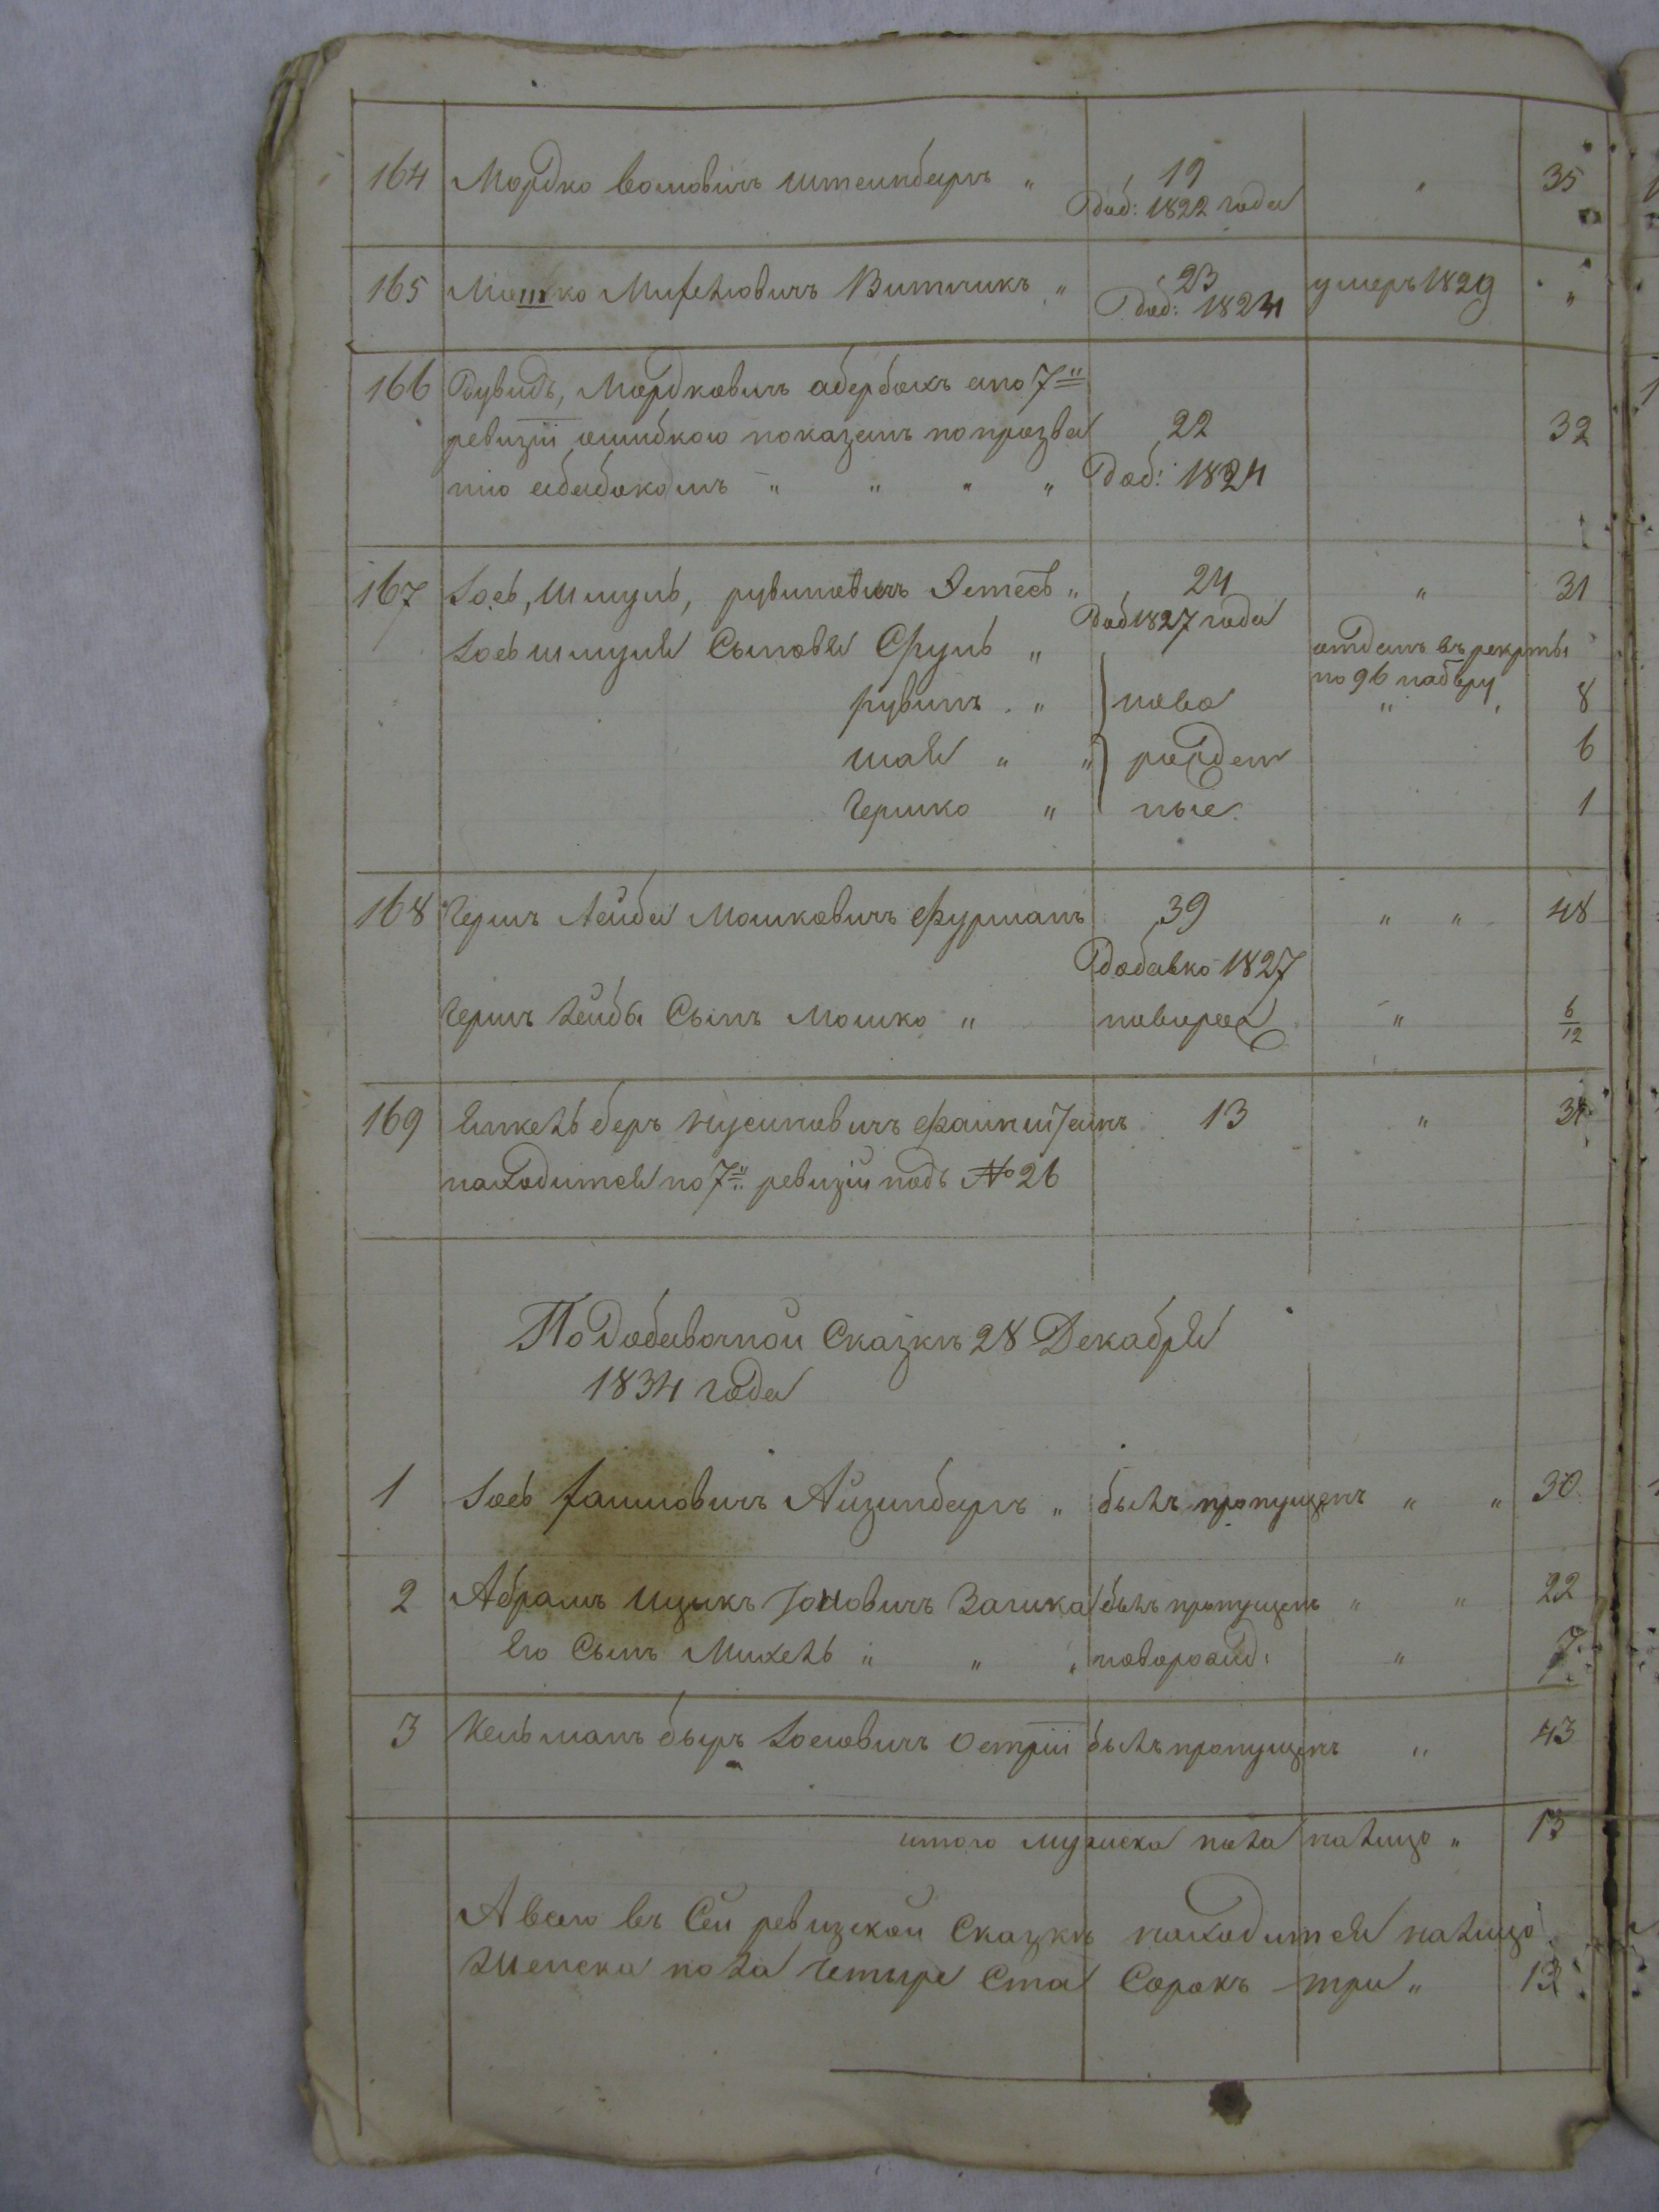 164 Мордко Волковичъ Штеинбергъ " 19 " 35
Доб: 1822 года
165 Мошко Михеловичъ Витчикъ " 23 умеръ 1829 "
Доб: 1824
166 Дувидъ, Мордковичъ абербокъ а по 7й
ревизіи ошибкою показанъ по прозва 22 32
нію абабокомъ " " " " Доб: 1824
167 Іось, Шмуль, рувиновичъ " 24 " 31
Доб 1827 года
Іось шмуля Сыновя Сруль " отданъ въ рекрты
по 96 набору
рувинъ " ново " 8
шая " " рожден 6
Гершко " ные 1
168 Гершъ Лейба Мошковичъ Фурманъ 39 " " 48
Добавко 1827
Гершъ Лейбы Сынъ Мошко " новорож " 6/12
169 Янкель беръ Нусиновичъ Фаинштеинъ 13 " 31
находится по 7й ревизіи подъ № 26
По Добавочнои Сказкѣ 28 Декабря
1834 года
1 Іось Хаимовичъ Айзинбергъ " былъ пропущенъ " " 30
2 Абрамъ Ицыкъ Заика былъ пропущенъ " " 22
Его Сынъ Михель " " " новорожд: " 7
3 Кельманъ беръ Іосиовичъ Острій былъ пропущенъ " 43
итого мужеска пола на лицо " 13
А всего въ Сей ревизской Сказкѣ находится на лицо
женска пола Четыре Ста Сорокъ три " 13